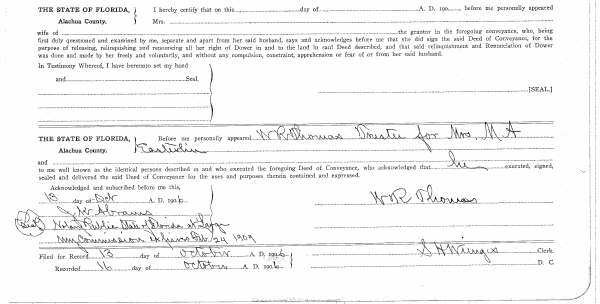 THE STATE OF FLORIDA, I hereby certify that on this day of A. D. 190 before me personally appeared
Alachua County. Mrs.
wife of the grantor in the foregoing conveyance, who, being
first duly questioned and examined by me, separate and apart from her said husband, says and acknowledges before me that she did sign the said Deed of Conveyance, for the
purpose of releasing, relinquishing and renouncing all her right of Dower in and to the land in said Deed described, and that said relinquishment and Renunciation of Dower
was done and made by her freely and voluntarily, and without any compulsion, constraint, apprehension or fear of or from her said husband.
In Testimony Whereof, I have hereunto set my hand
and Seal.
[SEAL.]
THE STATE OF FLORIDA, Before me personally appeared W R Thomas Trustee for Mrs. M A
Alachua County. Easterlin
and
to me well known as the identical persons described in and who executed the foregoing Deed of Conveyance, who acknowledged that he executed, signed,
sealed and delivered the said Deed of Conveyance for the uses and purposes therein contained and expressed.
Acknowledged and subscribed before me this,
13 day of Oct A. D. 1906 W R Thomas
J. W. Abrams
(Seal) Notary Public State of Florida at Large
My Commission expires Oct. 24 1909
Filed for Record 13 day of October A. D. 1906 S H Wienges Clerk
Recorded 16 day of October A. D. 1906 D. C.